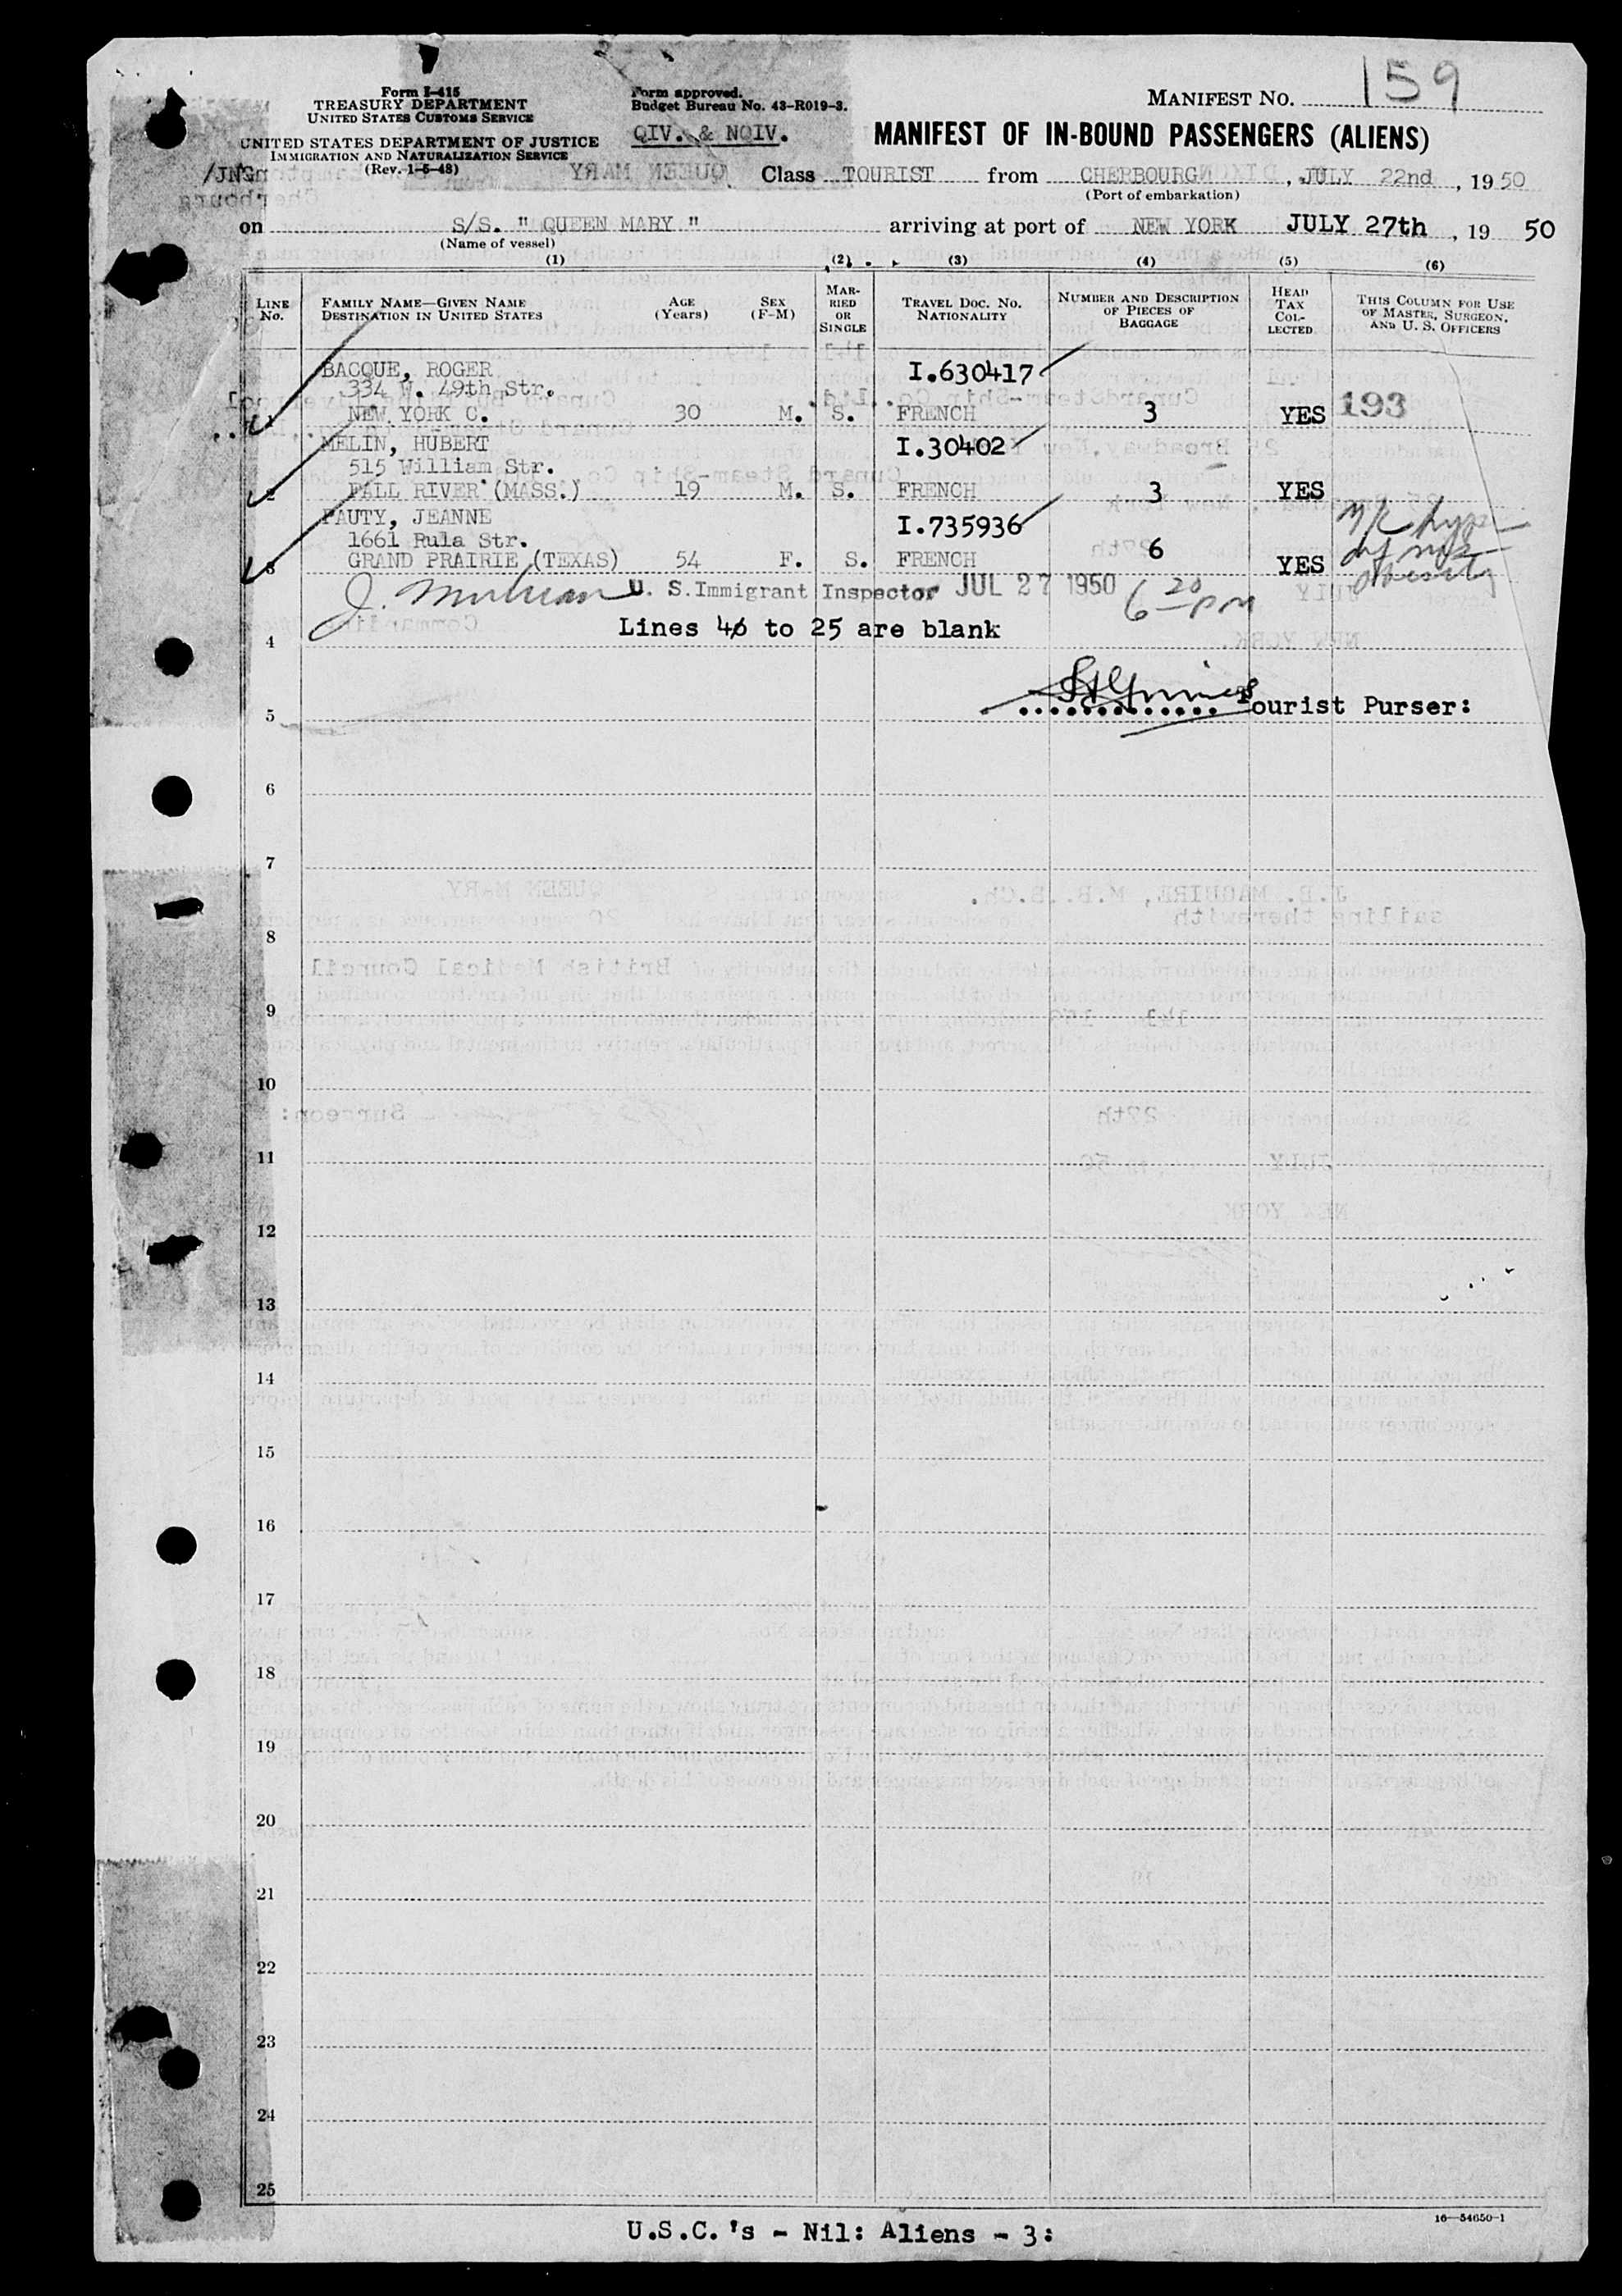 Form I-415
TREASURY DEPARTMENT
UNITED STATES CUSTOMS SERVICE
UNITED STATES DEPARTMENT OF JUSTICE
IMMIGRATION AND NATURALIZATION SERVICE
(Rev. 1-5-48)
Form approved.
Budget Bureau No. 43-R019-3.
QIV. & NQIV.
MANIFEST NO. 159
MANIFEST OF IN-BOUND PASSENGERS (ALIENS)
Class TOURIST from CHERBOURG, JULY 22nd, 1950
(Port of embarkation)
on S/S. " QUEEN MARY " arriving at port of NEW YORK JULY 27th, 19 50
(Name of vessel)
(1) (2) (3) (4) (5) (6)
LINE NO.
FAMILY NAME—GIVEN NAME
DESTINATION IN UNITED STATES
AGE
(Years)
SEX
(F-M)
MARRIED OR SINGLE
TRAVEL DOC. NO.
NATIONALITY
NUMBER AND DESCRIPTION OF PIECES OF BAGGAGE
HEAD TAX COLLECTED
THIS COLUMN FOR USE OF MASTER, SURGEON, AND U. S. OFFICERS
BACQUE, ROGER I.630417
334 W. 49th Str.
1 NEW YORK C. 30 M. S. FRENCH 3 YES 193
MELIN, HUBERT I.30402
515 William Str.
2 FALL RIVER (MASS.) 19 M. S. FRENCH 3 YES
PAUTY, JEANNE I.735936
1661 Rula Str.
3 GRAND PRAIRIE (TEXAS) 54 F. S. FRENCH 6 YES
obesity
U. S. Immigrant Inspector JUL 27 1950 6 20 PM
4 Lines 4 to 25 are blank
5 ............. Tourist Purser:
6
7
8
9
10
11
12
13
14
15
16
17
18
19
20
21
22
23
24
25
16—54650-1
U.S.C.'s - Nil: Aliens - 3: